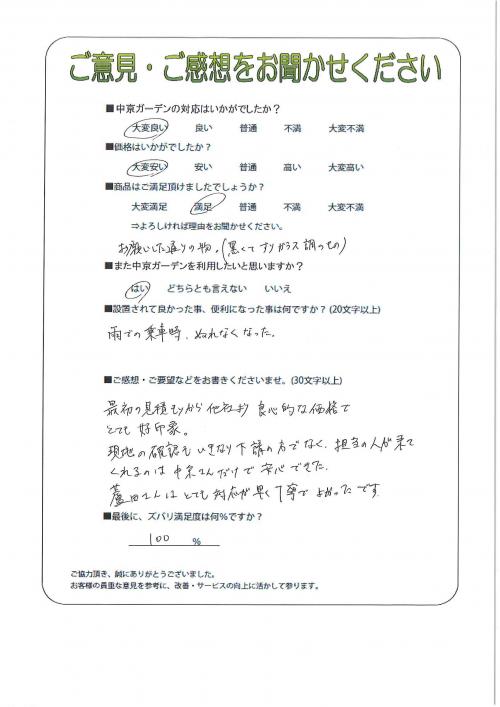 ご意見・ご感想をお聞かせください
■中京ガーデンの対応はいかがでしたか？
大変良い 良い 普通 不満 大変不満
■価格はいかがでしたか？
大変安い 安い 普通 高い 大変高い
■商品はご満足頂けましたでしょうか？
大変満足 満足 普通 不満 大変不満
⇒よろしければ理由をお聞かせください。
お願いした通りの物。(黒くてすりガラス調のもの)
■また中京ガーデンを利用したいと思いますか？
はい どちらとも言えない いいえ
■設置されて良かった事、便利になった事は何ですか？(20文字以上)
雨での乗車時、ぬれなくなった。
■ご感想・ご要望などをお書きくださいませ。(30文字以上)
最初の見積もりから他社より良心的な価格で
とても好印象。
現地の確認もいきなり下請の方でなく、担当の人が来て
くれるのは中京さんだけで安心できた。
蘆田さんはとても対応が早く丁寧でよかったです
■最後に、ズバリ満足度は何％ですか？
100 ％
ご協力頂き、誠にありがとうございました。
お客様の貴重な意見を参考に、改善・サービスの向上に活かして参ります。